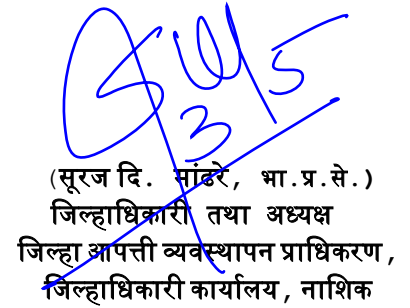 3/5
(सूरज दि. मांढरे, भा.प्र.से.)
जिल्हाधिकारी तथा अध्यक्ष
जिल्हा आपत्ती व्यवस्थापन प्राधिकरण,
जिल्हाधिकारी कार्यालय, नाशिक